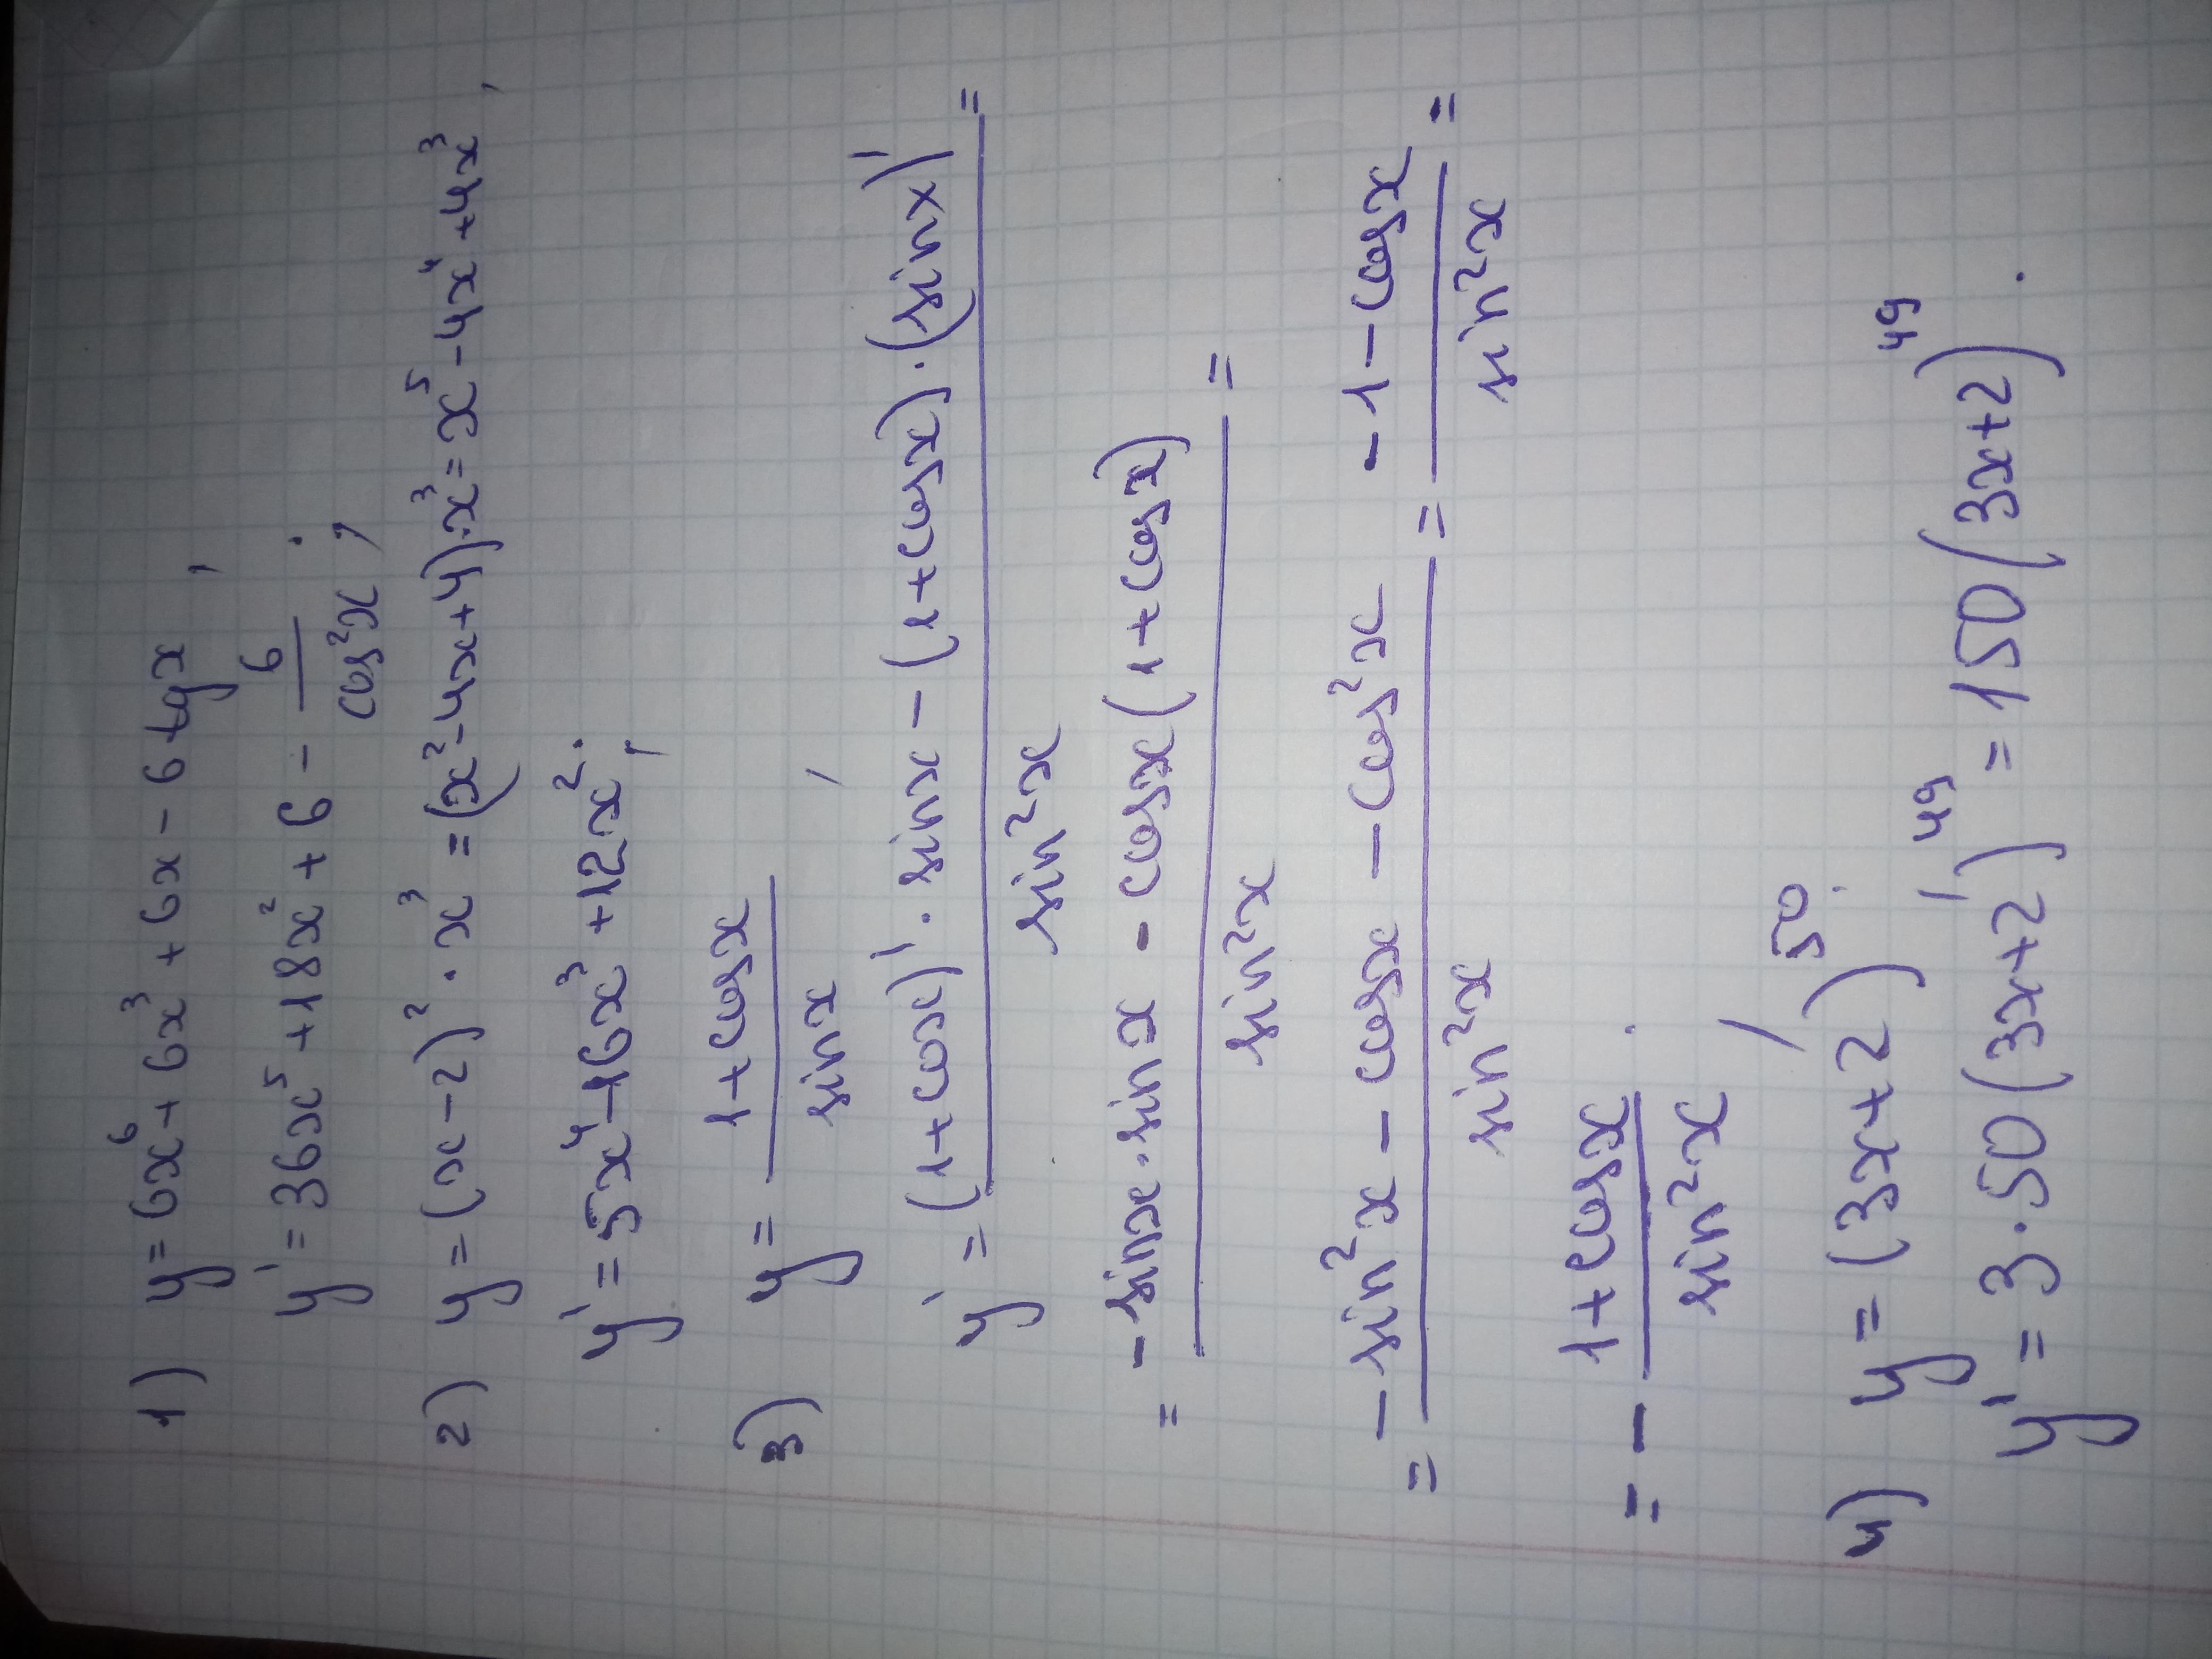 1) y = 6x⁶ + 6x³ + 6x - 6 tgx ,
y' = 36x⁵ + 18x² + 6 - 6/cos²x ;
2) y = (x-2)² · x³ = (x²-4x+4)·x³ = x⁵ - 4x⁴ + 4x³ ,
y' = 5x⁴ - 16x³ + 12x² ;
3) y = (1+cosx)/sinx ,
y' = ((1+cosx)' · sinx - (1+cosx) · (sinx)')/sin²x =
= (-sinx · sinx - cosx(1+cosx))/sin²x =
= (-sin²x - cosx - cos²x)/sin²x = (-1-cosx)/sin²x =
= - (1+cosx)/sin²x .
4) y = (3x+2)⁵⁰ ,
y' = 3·50(3x+2)'⁴⁹ = 150(3x+2)⁴⁹ .